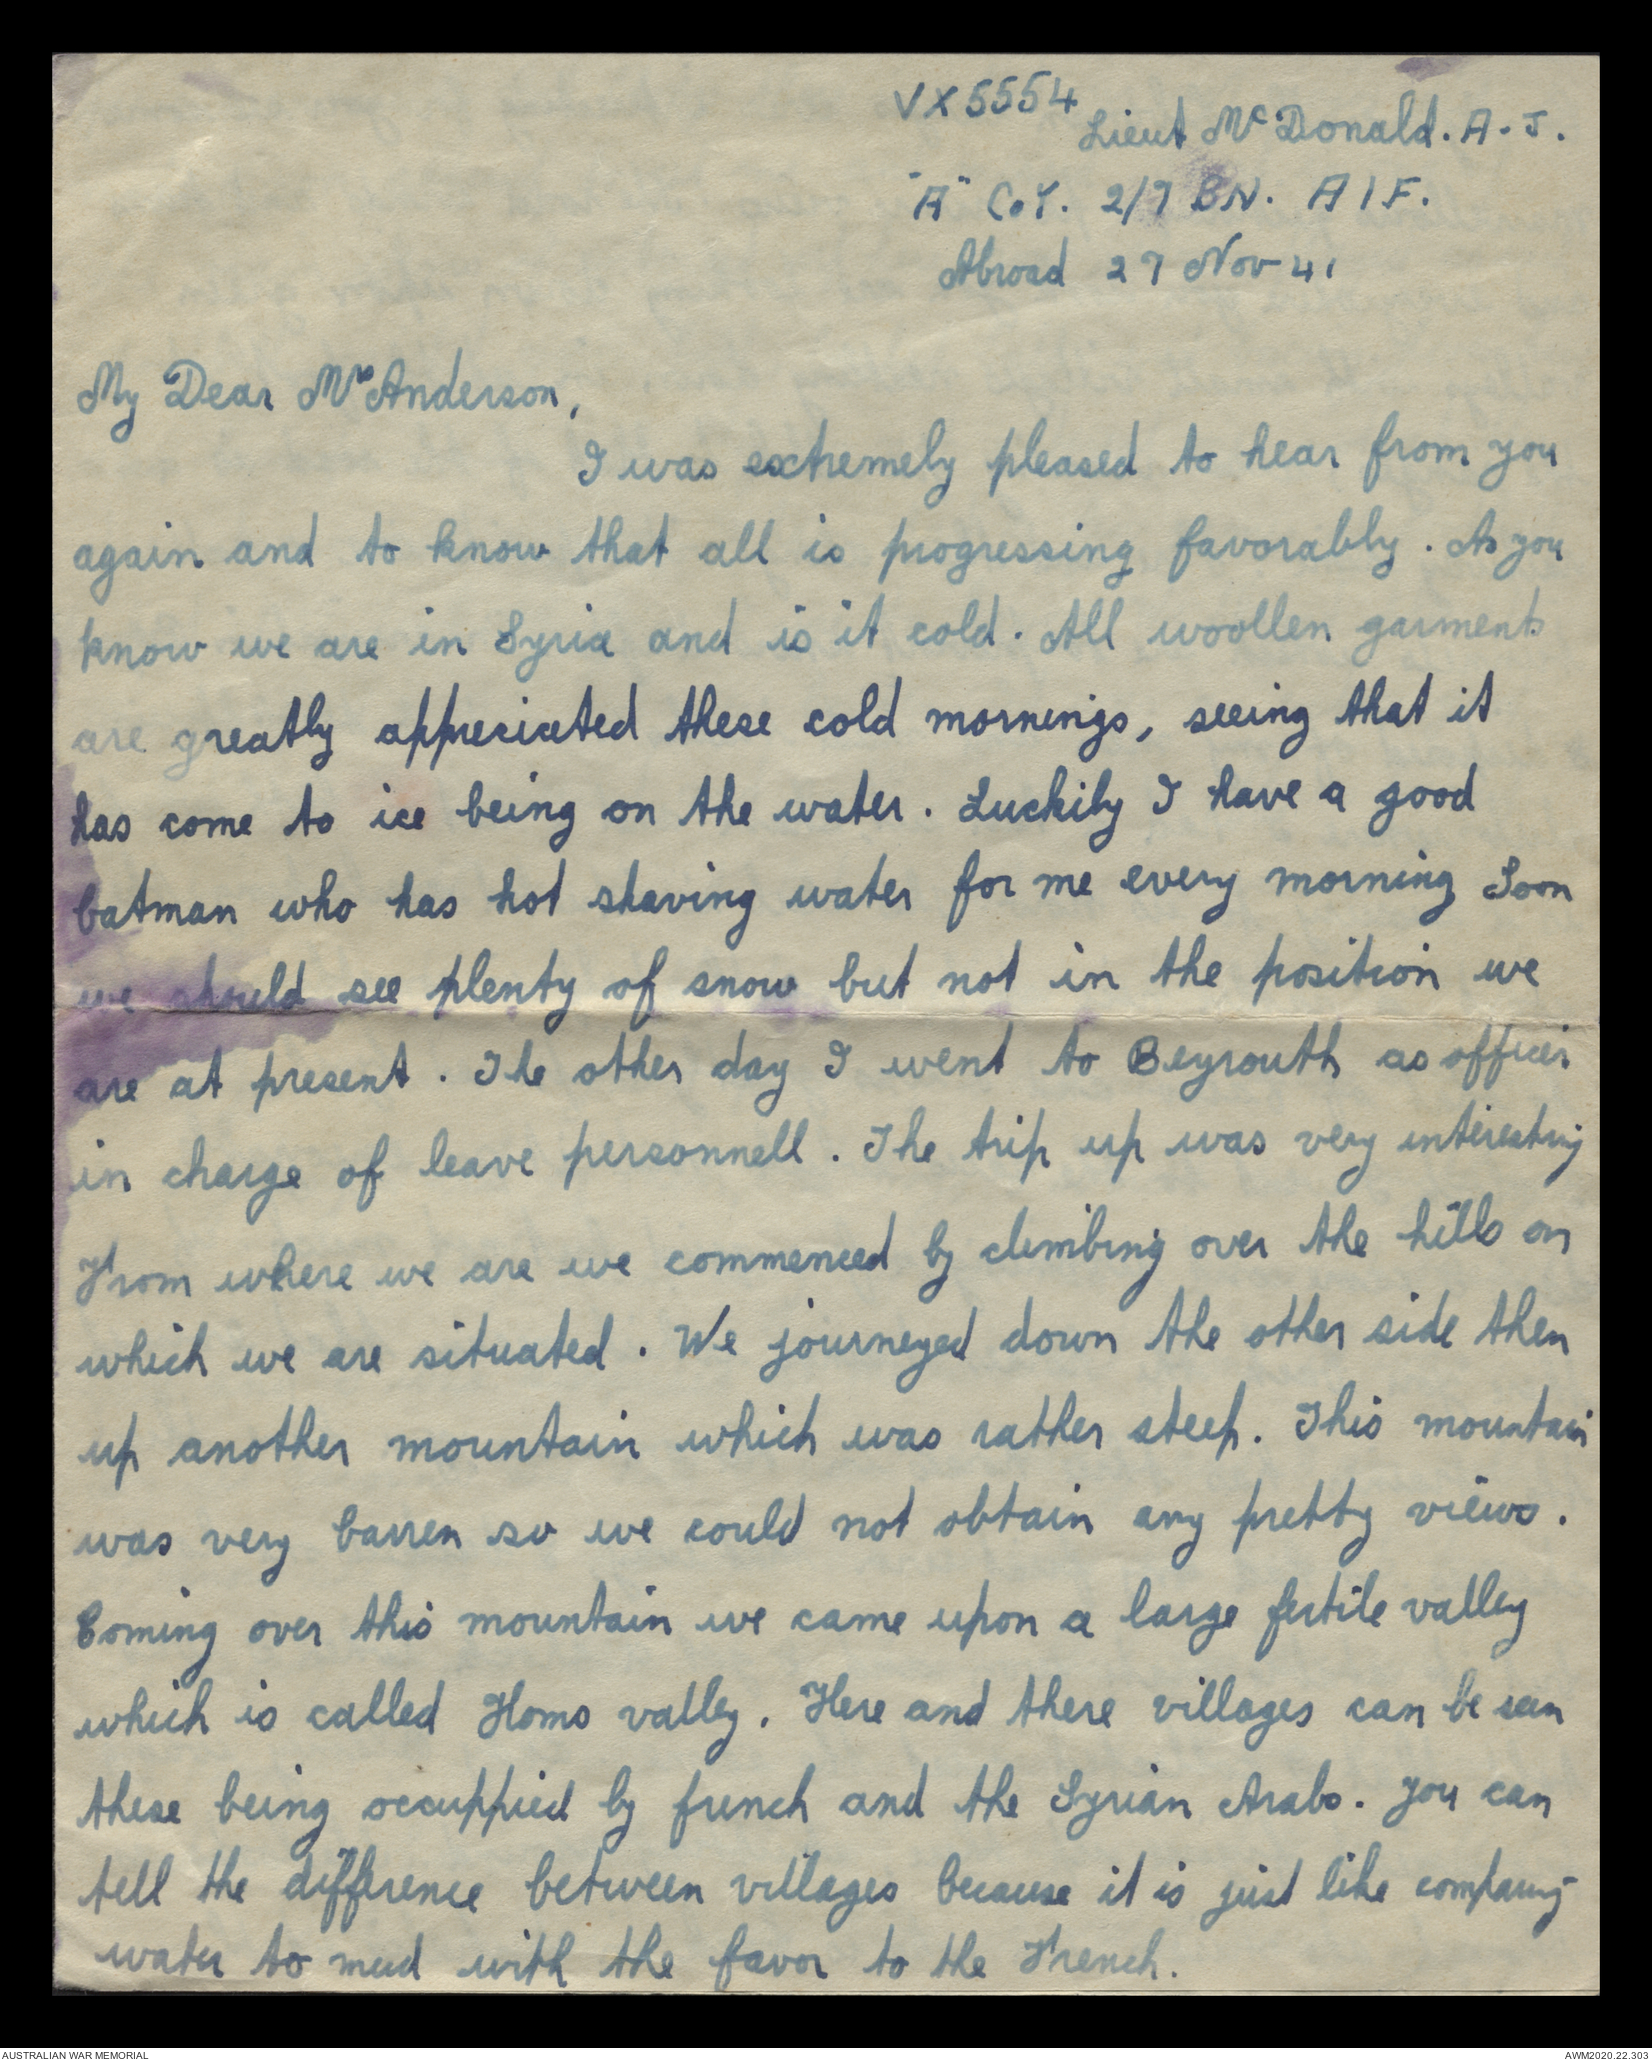 VX5554
Lieut McDonald. A. J.
"A" Coy. 2/7 BN. AIF.
Abroad 27 Nov 41
My Dear Mrs Anderson,
I was extremely pleased to hear from you
again and to know that all is progressing favorably. As you
know we are in Syria and is it cold. All woollen garments
are greatly appreciated these cold mornings, seeing that it
has come to ice being on the water. Luckily I have a good
batman who has hot shaving water for me every morning Soon
we should see plenty of snow but not in the position we
are at present. The other day I went to Beyrouth as officer
in charge of leave personnell. The trip up was very interesting
From where we are we commenced by climbing over the hills on
which we are situated. We journeyed down the other side then
up another mountain which was rather steep. This mountain
was very barren so we could not obtain any pretty views.
Coming over this mountain we came upon a large fertile valley
which is called Homs valley. Here and there villages can be seen
these being occuppied by french and the Syrian Arabs. You can
tell the difference between villages because it is just like comparing
water to mud with the favor to the French.
AUSTRALIAN WAR MEMORIAL
AWM2020.22.303